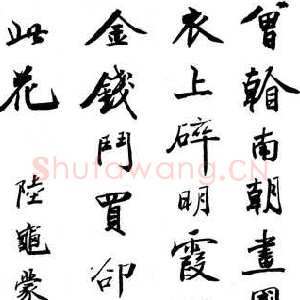 曾看南朝畫國
衣上碎明霞
金錢鬥買卻
此花
陸龜蒙
Shufawang.CN